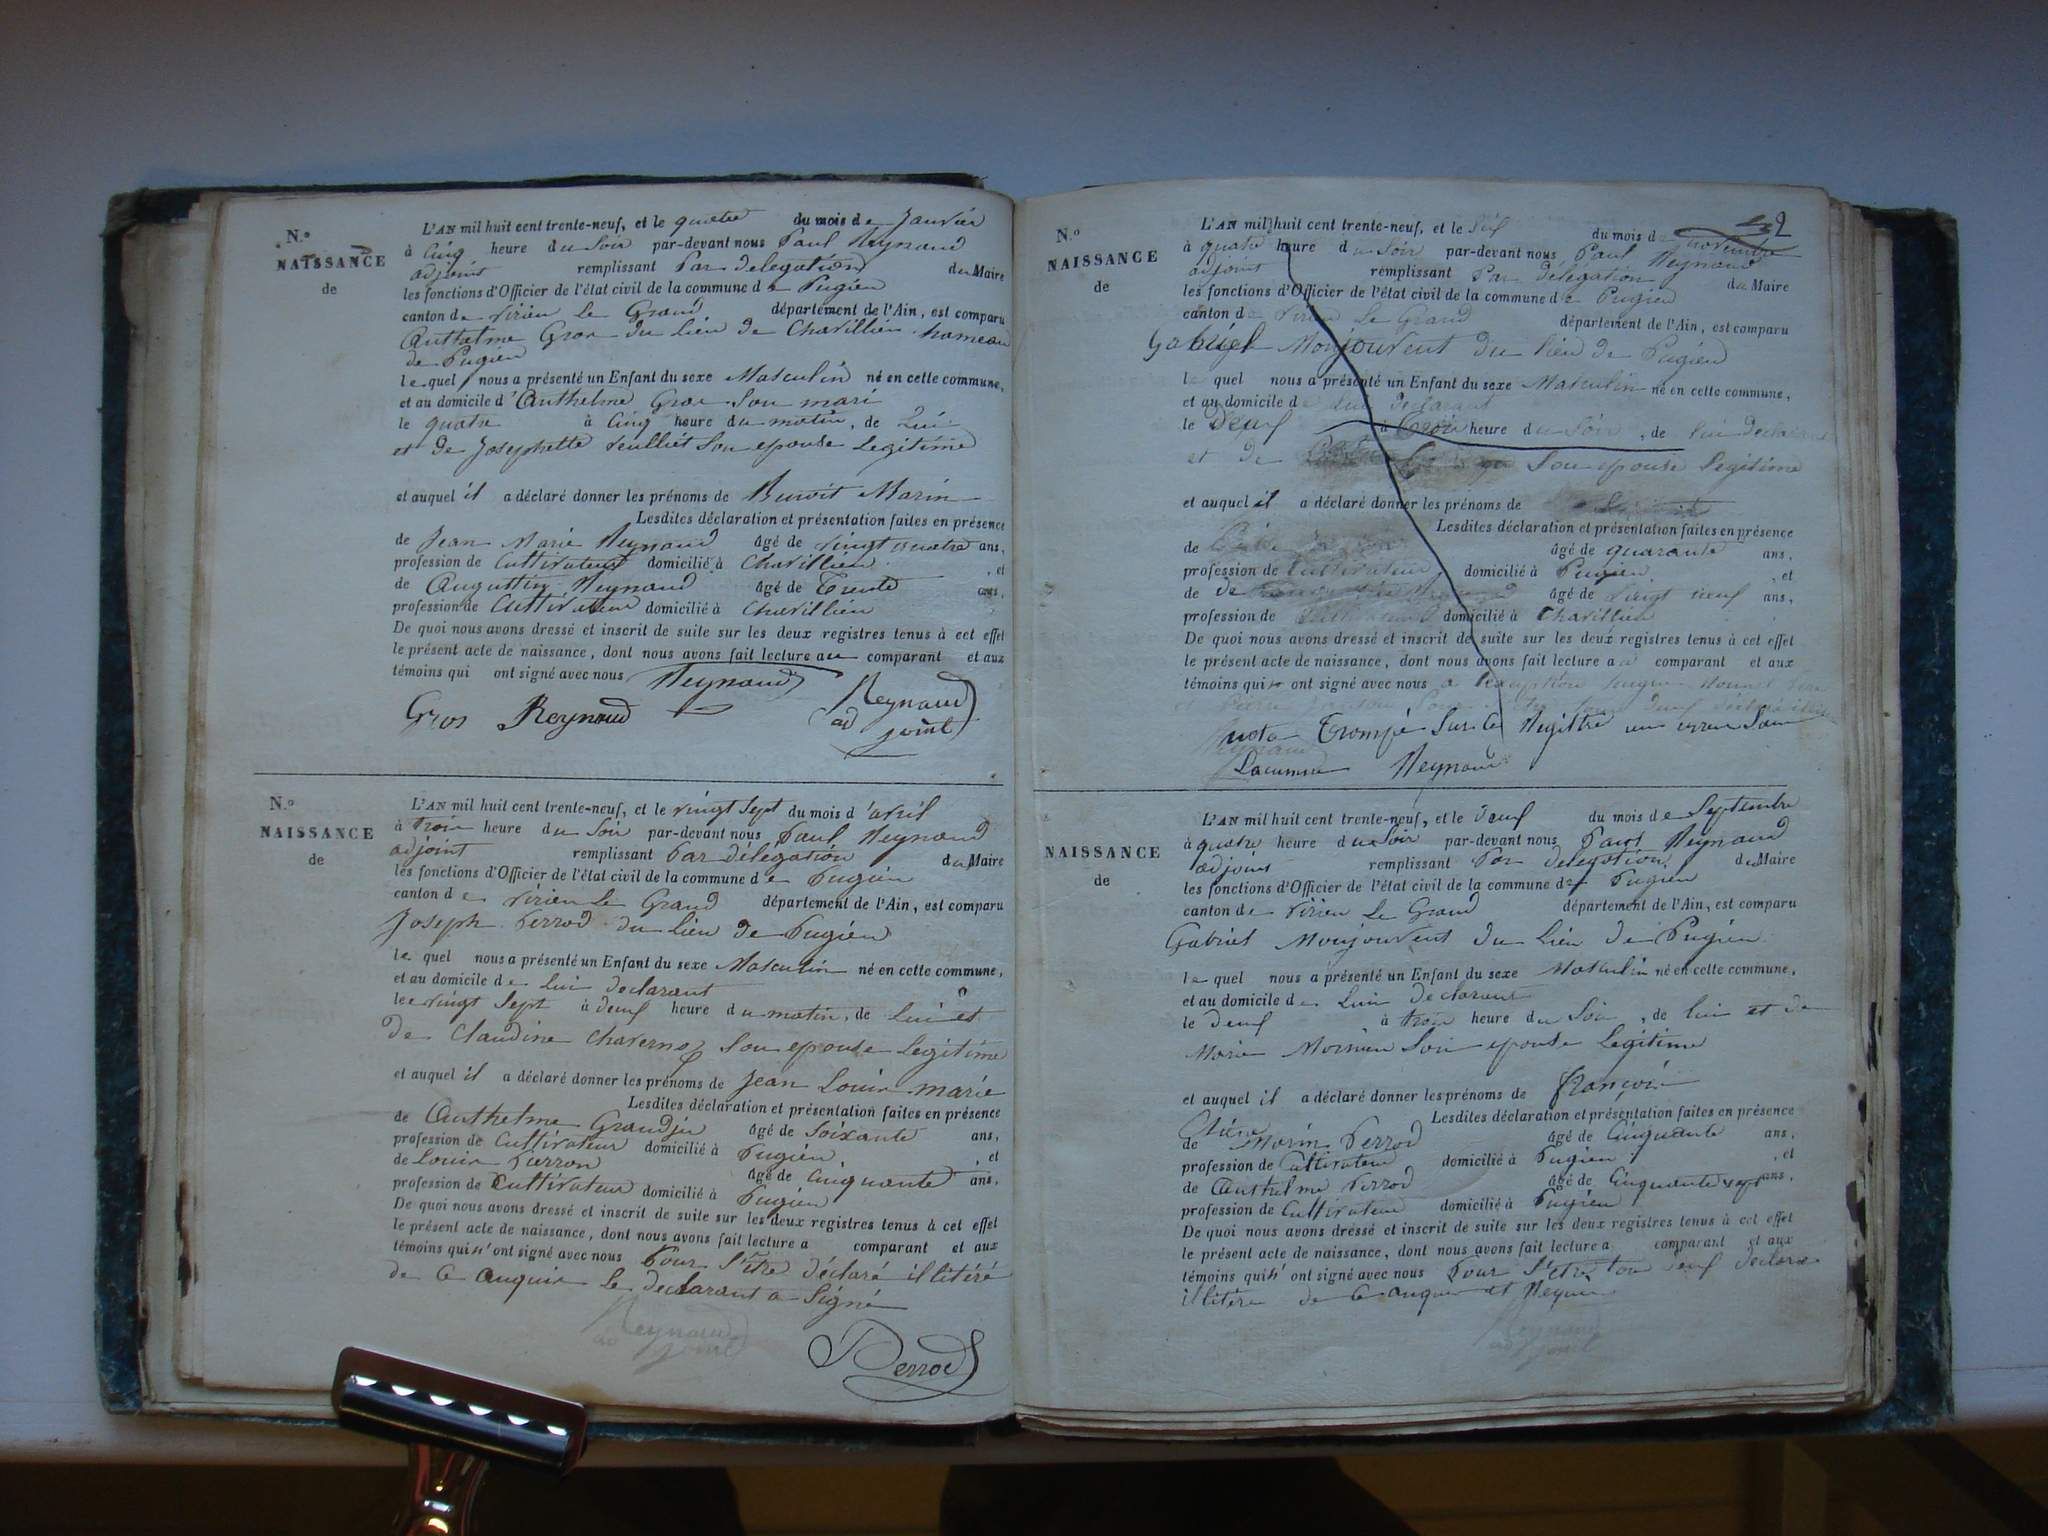 N.º
NAISSANCE
de
L'AN mil huit cent trente-neuf, et le quatre du mois de Janvier
à Cinq heure du Soir par-devant nous Paul Reynaud
adjoint remplissant Par delegation du Maire
les fonctions d'Officier de l'état civil de la commune de Pugieu
canton de Virieu Le Grand département de l'Ain, est comparu
Anthelme Gros du Lieu de Chavillieu hameau
de Pugieu
lequel nous a présenté un Enfant du sexe Masculin né en cette commune,
et au domicile d'Anthelme Gros Son mari
le quatre à Cinq heure du matin, de Lui
et de Josephette Son epouse Legitime
et auquel il a déclaré donner les prénoms de Benoit Marin
Lesdites déclaration et présentation faites en présence
de Jean Marie Reynaud âgé de vingt quatre ans,
profession de Cultivateur domicilié à Chavillieu, et
de Augustin Reynaud âgé de Trente ans,
profession de Cultivateur domicilié à Chavillieu
De quoi nous avons dressé et inscrit de suite sur les deux registres tenus à cet effet
le présent acte de naissance, dont nous avons fait lecture au comparant et aux
témoins qui ont signé avec nous Reynaud
Gros Reynaud Reynaud
ad
joint
N.º
NAISSANCE
de
L'AN mil huit cent trente-neuf, et le vingt Sept du mois d'avril
à trois heure du Soir par-devant nous Paul Reynaud
adjoint remplissant Par délégation du Maire
les fonctions d'Officier de l'état civil de la commune de Pugieu
canton de Virieu Le Grand département de l'Ain, est comparu
Joseph Perrod du Lieu de Pugieu
lequel nous a présenté un Enfant du sexe Masculin né en cette commune,
et au domicile de Lui declarant
le vingt Sept à deux heure du matin, de Lui et
de Claudine Son epouse Legitime
et auquel il a déclaré donner les prénoms de Jean Louis marie
Lesdites déclaration et présentation faites en présence
de Anthelme âgé de Soixante ans,
profession de Cultivateur domicilié à Pugieu, et
de Louis âgé de Cinquante ans,
profession de Cultivateur domicilié à Pugieu
De quoi nous avons dressé et inscrit de suite sur les deux registres tenus à cet effet
le présent acte de naissance, dont nous avons fait lecture a comparant et aux
témoins qui n'ont signé avec nous Pour S'être déclaré illitéré
de Ce le declarant a Signé
Reynaud
ad joint
Perrod
2
N.º
NAISSANCE
de
L'AN mil huit cent trente-neuf, et le Six du mois de novembre
à quatre heure du Soir par-devant nous Paul Reynaud
adjoint remplissant Par délégation du Maire
les fonctions d'Officier de l'état civil de la commune de Pugieu
canton de Virieu Le Grand département de l'Ain, est comparu
Gabriel Monjouvent du Lieu de Pugieu
le quel nous a présenté un Enfant du sexe Masculin né en cette commune,
et au domicile de Lui declarant
le deux à trois heure du Soir, de lui declarant
et de Son epouse legitime
et auquel il a déclaré donner les prénoms de
Lesdites déclaration et présentation faites en présence
de âgé de quarante ans,
profession de Cultivateur domicilié à Pugieu, et
de âgé de vingt neuf ans,
profession de Cultivateur domicilié à Chavillieu
De quoi nous avons dressé et inscrit de suite sur les deux registres tenus à cet effet
le présent acte de naissance, dont nous avons fait lecture a comparant et aux
témoins qui ont signé avec nous
Trompé Sur Ce Régistre
Reynaud
N.º
NAISSANCE
de
L'AN mil huit cent trente-neuf, et le deux du mois de Septembre
à quatre heure du Soir par-devant nous Paul Reynaud
adjoint remplissant Par délégation du Maire
les fonctions d'Officier de l'état civil de la commune de Pugieu
canton de Virieu Le Grand département de l'Ain, est comparu
Gabriel Monjouvent du Lieu de Pugieu
le quel nous a présenté un Enfant du sexe Masculin né en cette commune,
et au domicile de Lui declarant
le deux à trois heure du Soir, de lui et de
Marie Son epouse Legitime
et auquel il a déclaré donner les prénoms de françois
Lesdites déclaration et présentation faites en présence
de Marin Perrod âgé de Cinquante ans,
profession de Cultivateur domicilié à Pugieu, et
de Anthelme Perrod âgé de Cinquante sept ans,
profession de Cultivateur domicilié à Pugieu
De quoi nous avons dressé et inscrit de suite sur les deux registres tenus à cet effet
le présent acte de naissance, dont nous avons fait lecture a comparant et aux
témoins qui n'ont signé avec nous Pour S'être tous deux déclaré
de Ce et
Reynaud
ad joint